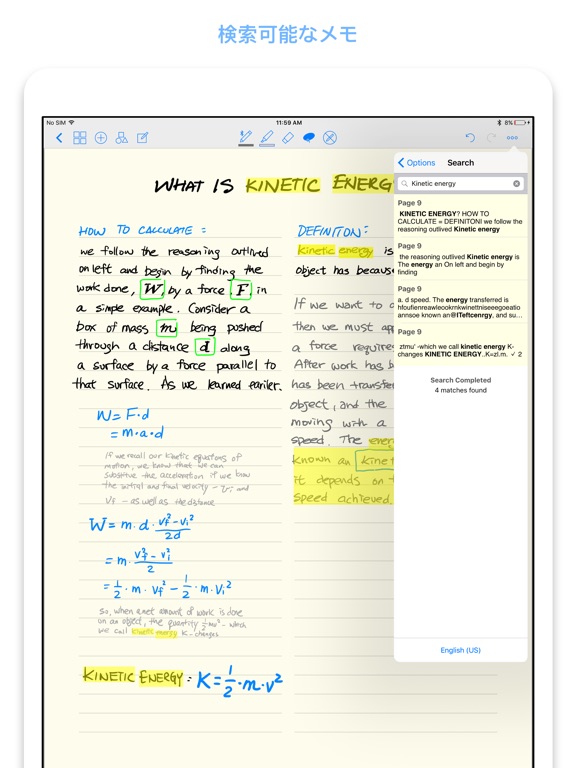 検索可能なメモ
No SIM
11:59 AM
8%
WHAT IS KINETIC ENERG
HOW TO CALCULATE :
we follow the reasoning outlined
on left and begin by finding the
work done, W, by a force F, in
a simple example. Consider a
box of mass m being pushed
through a distance d along
a surface by a force parallel to
that surface. As we learned earlier.
W = F·d
= m·a·d
If we recall our kinetic equations of
motion, we know that we can
substitute the acceleration if we know
the initial and final velocity – vi and
vf – as well as the distance
W = m·d· vf²-vi²/2d
= m· vf²-vi²/2
= 1/2 · m · vf² - 1/2 · m · vi²
So, when a net amount of work is done
on an object, the quantity 1/2mv² – which
we call kinetic energy K – changes
KINETIC ENERGY : K = 1/2 · m · v²
DEFINITON:
kinetic energy is
object has becaus
If we want to a
then we must app
a force require
After work has b
has been transfe
object, and the
moving with a
speed. The energ
known an kinet
it depends on t
speed achieved.
Options
Search
Kinetic energy
Page 9
KINETIC ENERGY? HOW TO
CALCULATE = DEFINITONI we follow the
reasoning outlived Kinetic energy
Page 9
the reasoning Outlived Kinetic energy is
The energy an On left and begin by
finding
Page 9
a. d speed. The energy transferred is
hfouflenreawleookrnkwinettniseeegoeatio
annsoe known an@lTeftcenrgy, and su…
Page 9
ztmu' -which we call kinetic energy K-
changes KINETIC ENERGY..K=zl.m. ✓ 2
Search Completed
4 matches found
English (US)